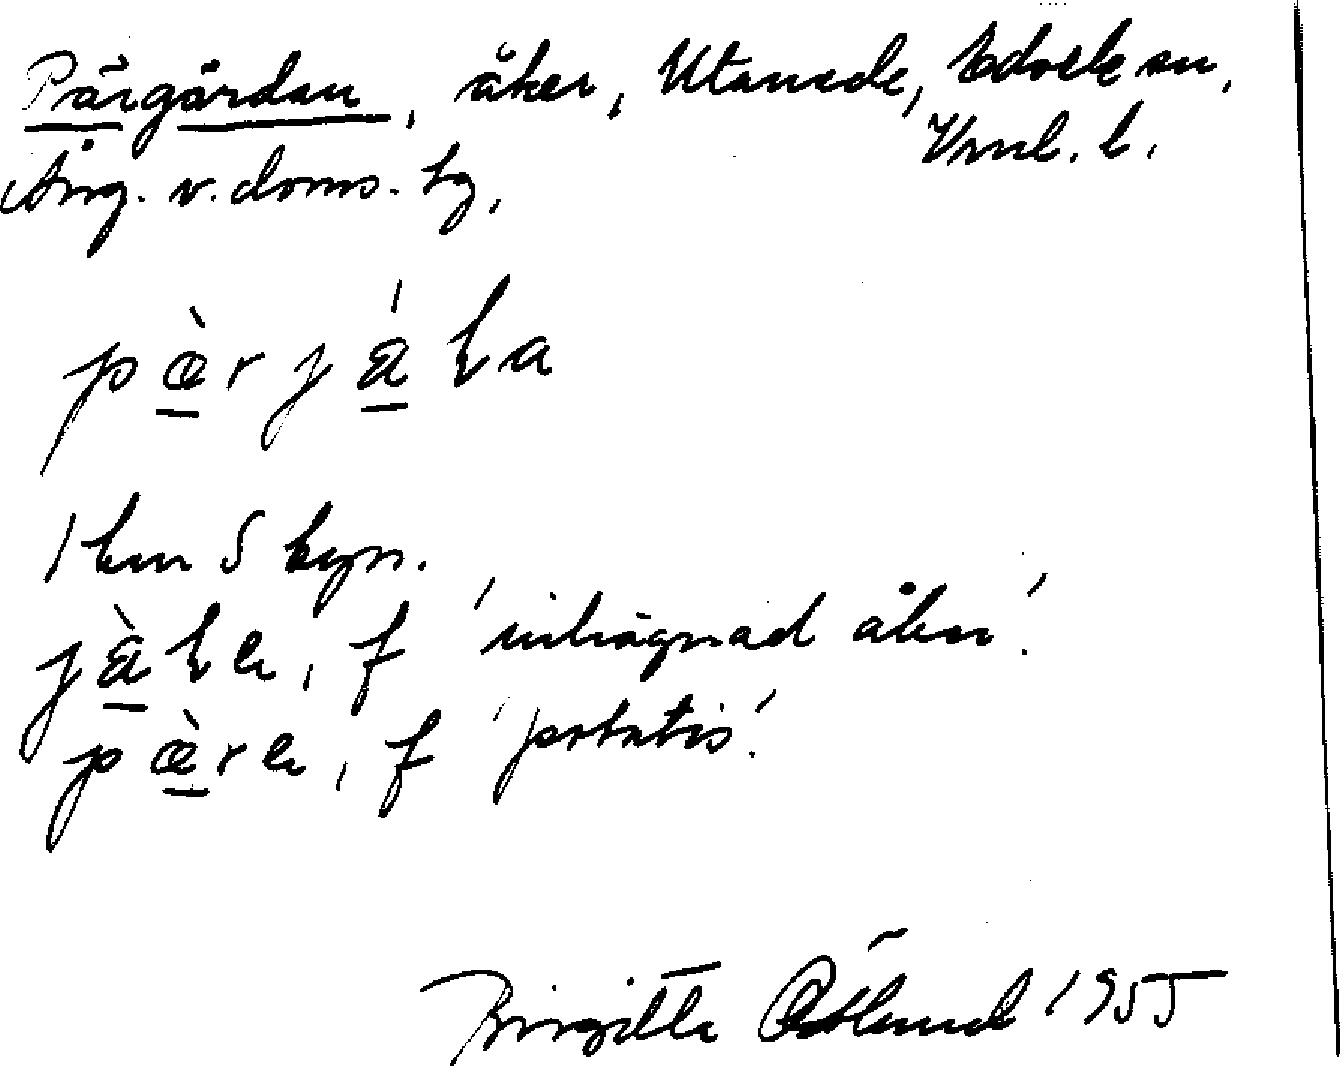 Pärgärdan, åker, Utanede, Edsele sn,
Vnnl. l.
Ång. v. doms. tg.
pæ̱̀rjá̱ɫa
1 km S byn.
jà̱ɫɐ, f 'inhägnad åker'.
pæ̱̀rɐ, f 'potatis'.
Birgitta Östlund 1955